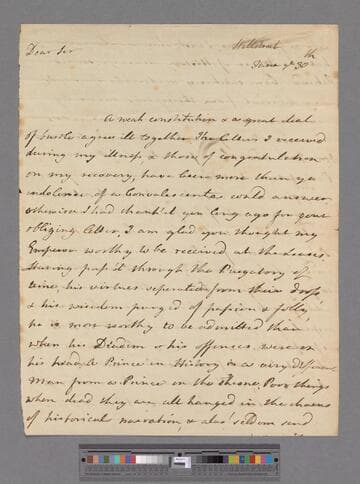 Hillstreet
Dear Sir
June ye 30th
A weak constitution & a great deal
of bustle agree ill together The letters I received
during my illness, & those of congratulation
on my recovery, have been more than ye
indolence of a Convalescente could answer
otherwise I had thank'd you long ago for your
obliging letter, I am glad you thought my
Emperor worthy to be received at the Leasowes.
Having pass'd through the Purgatory of
time, his virtues seperated from their dross
& his wisdom purged of passion & folly,
he is more worthy to be admitted than
when his Diadem & his offences were on
his head, A Prince in History is a very different
man from a Prince on the Throne, Poor things
when dead they are all hanged in the chains
of historical narration, & alas! seldom send